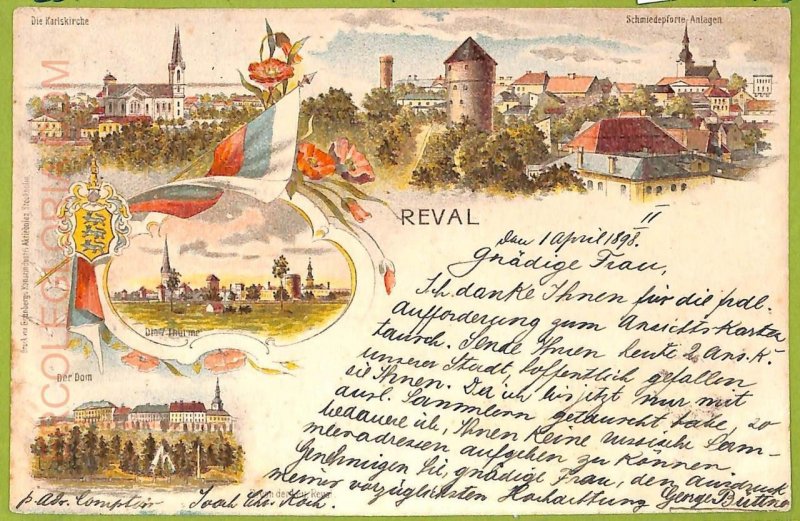 Die Karlskirche
Schmiedepforte-Anlagen
REVAL
II
Den 1 April 1898.
Gnädige Frau,
Ich danke Ihnen für die frdl.
Aufforderung zum Ansichtskarten
tausch. Sende Ihnen heute 2 Ans. K.
unserer Stadt, hoffentlich gefallen
sie Ihnen. Da ich bis jetzt nur mit
ausl. Sammlern getauscht habe, so
bedauere ich, Ihnen keine russische Sam-
meleradressen aufgeben zu können.
Genehmigen Sie, gnädige Frau, den Ausdruck
meiner vorzüglichsten Hochachtung George Büttner
Die Thürme
Der Dom
p. adr. Comptoir Joach. Chr. Koch.